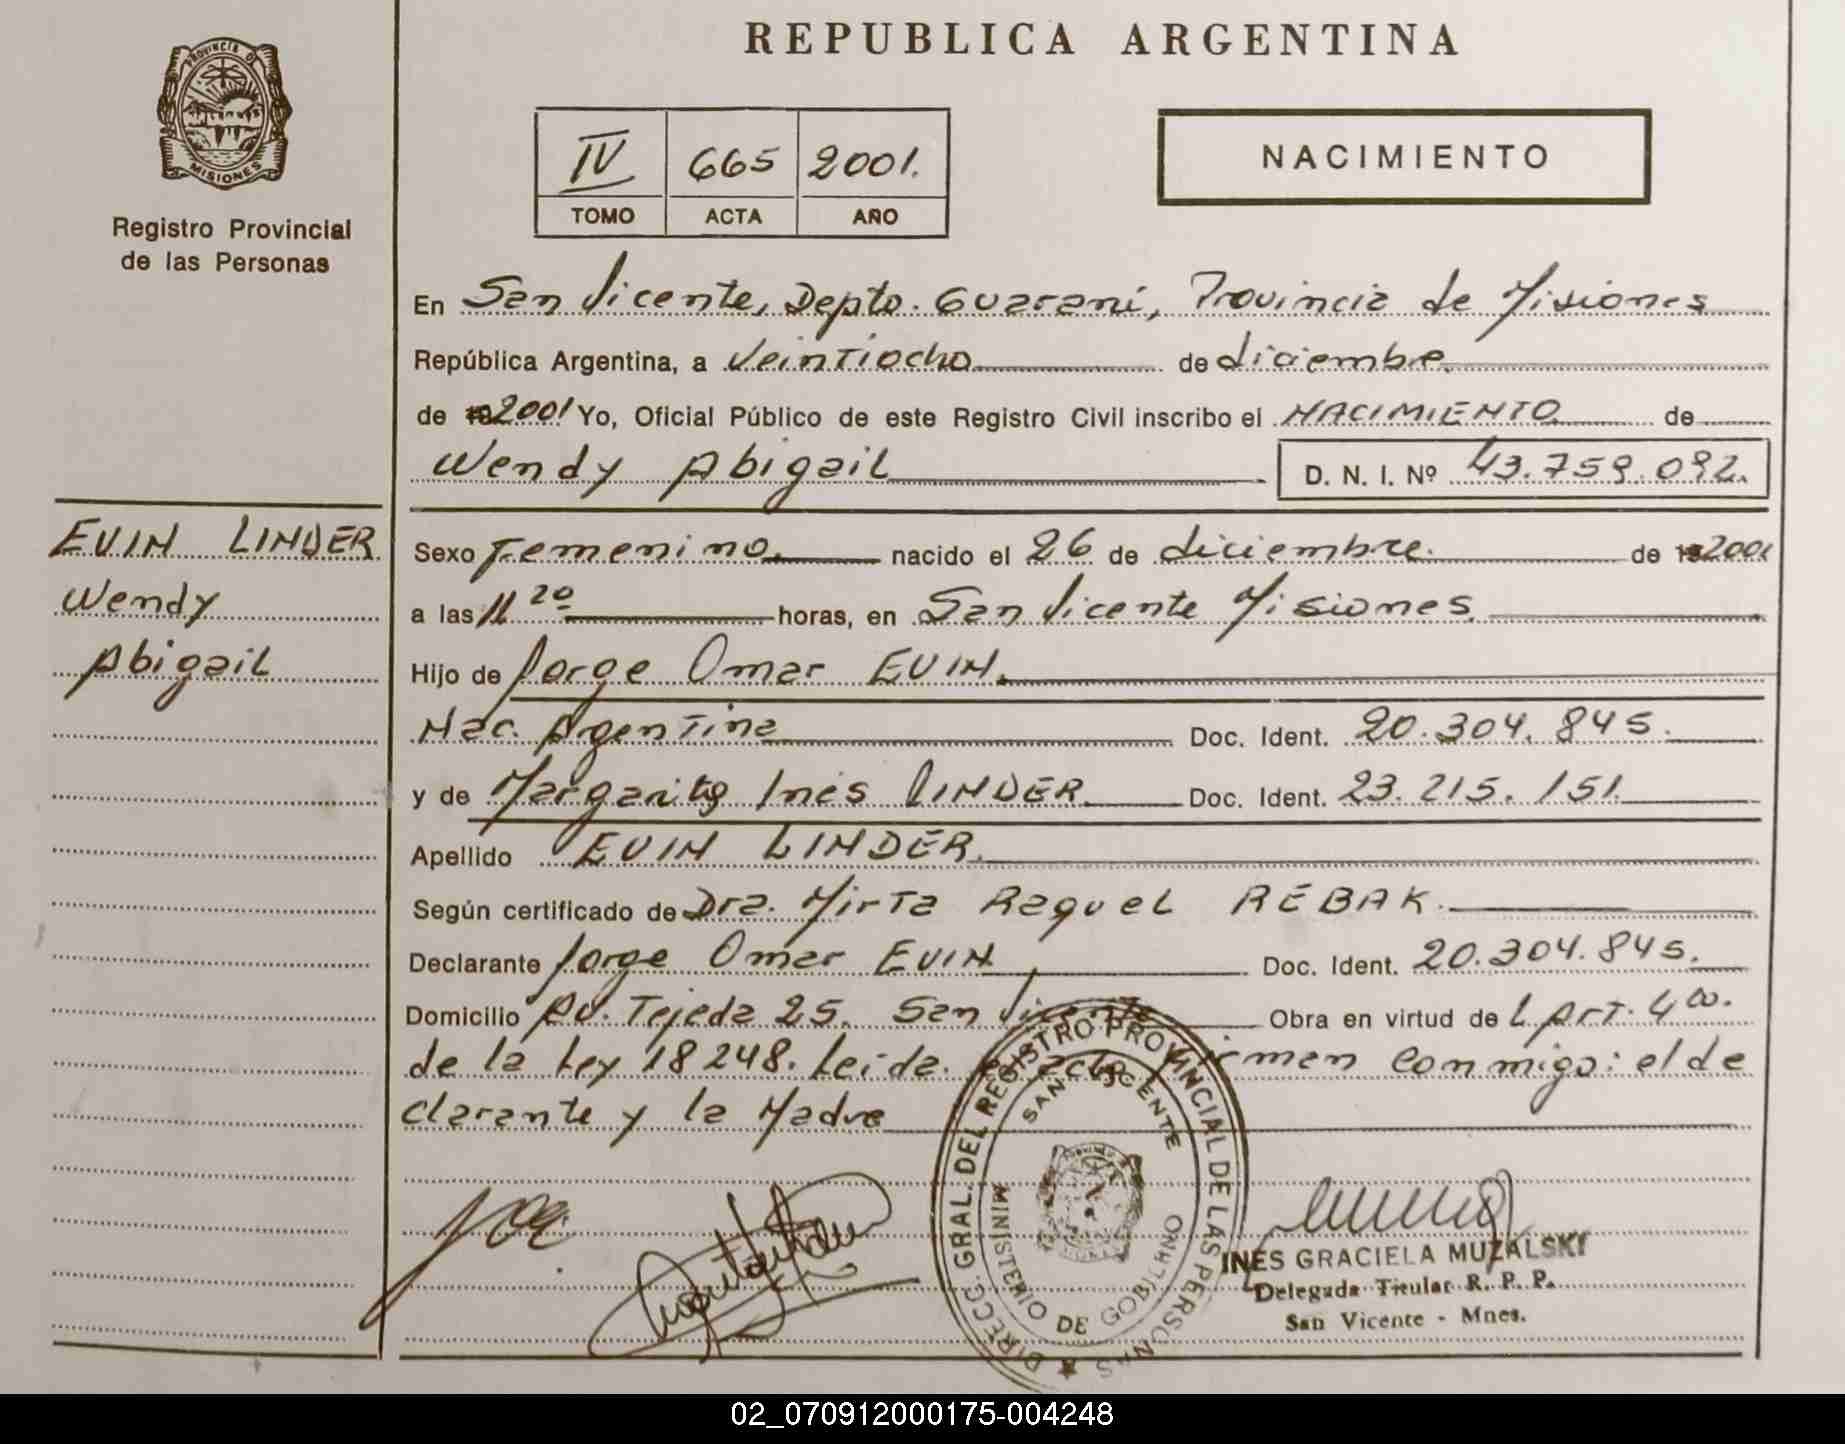 REPUBLICA ARGENTINA
PROVINCIA DE
MISIONES
Registro Provincial
de las Personas
IV 665 2001.
TOMO ACTA AÑO
NACIMIENTO
En San Vicente, Depto. Guaraní, Provincia de Misiones
República Argentina, a Veintiocho de diciembre
de 2001 Yo, Oficial Público de este Registro Civil inscribo el NACIMIENTO de
Wendy Abigail D. N. I. Nº 43.759.092.
EVIN LINDER
Wendy
Abigail
Sexo Femenino. nacido el 26 de diciembre. de 2001
a las 11 20 horas, en San Vicente Misiones
Hijo de Jorge Omar EVIN.
Nac. Argentina Doc. Ident. 20.304.845.
y de Margarita Inés LINDER Doc. Ident. 23.215.151
Apellido EVIN LINDER.
Según certificado de Dra. Mirta Raquel REBAK.
Declarante Jorge Omar EVIN Doc. Ident. 20.304.845.
Domicilio Av. Tejeda 25. San Vicente Obra en virtud del Art. 4to.
de la Ley 18248. Leida el acta firman conmigo: el de
clarante y la Madre
DIRECC. GRAL. DEL REGISTRO PROVINCIAL DE LAS PERSONAS
SAN VICENTE
MINISTERIO DE GOBIERNO
INES GRACIELA MUZALSKI
Delegada Titular R. P. P.
San Vicente - Mnes.
02_070912000175-004248